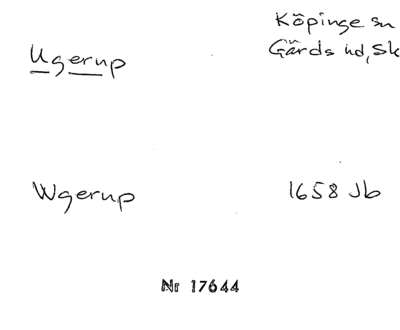 Köpinge sn
Ugerup
Gärds hd, Sk
Wgerup
1658 Jb
Nr 17644